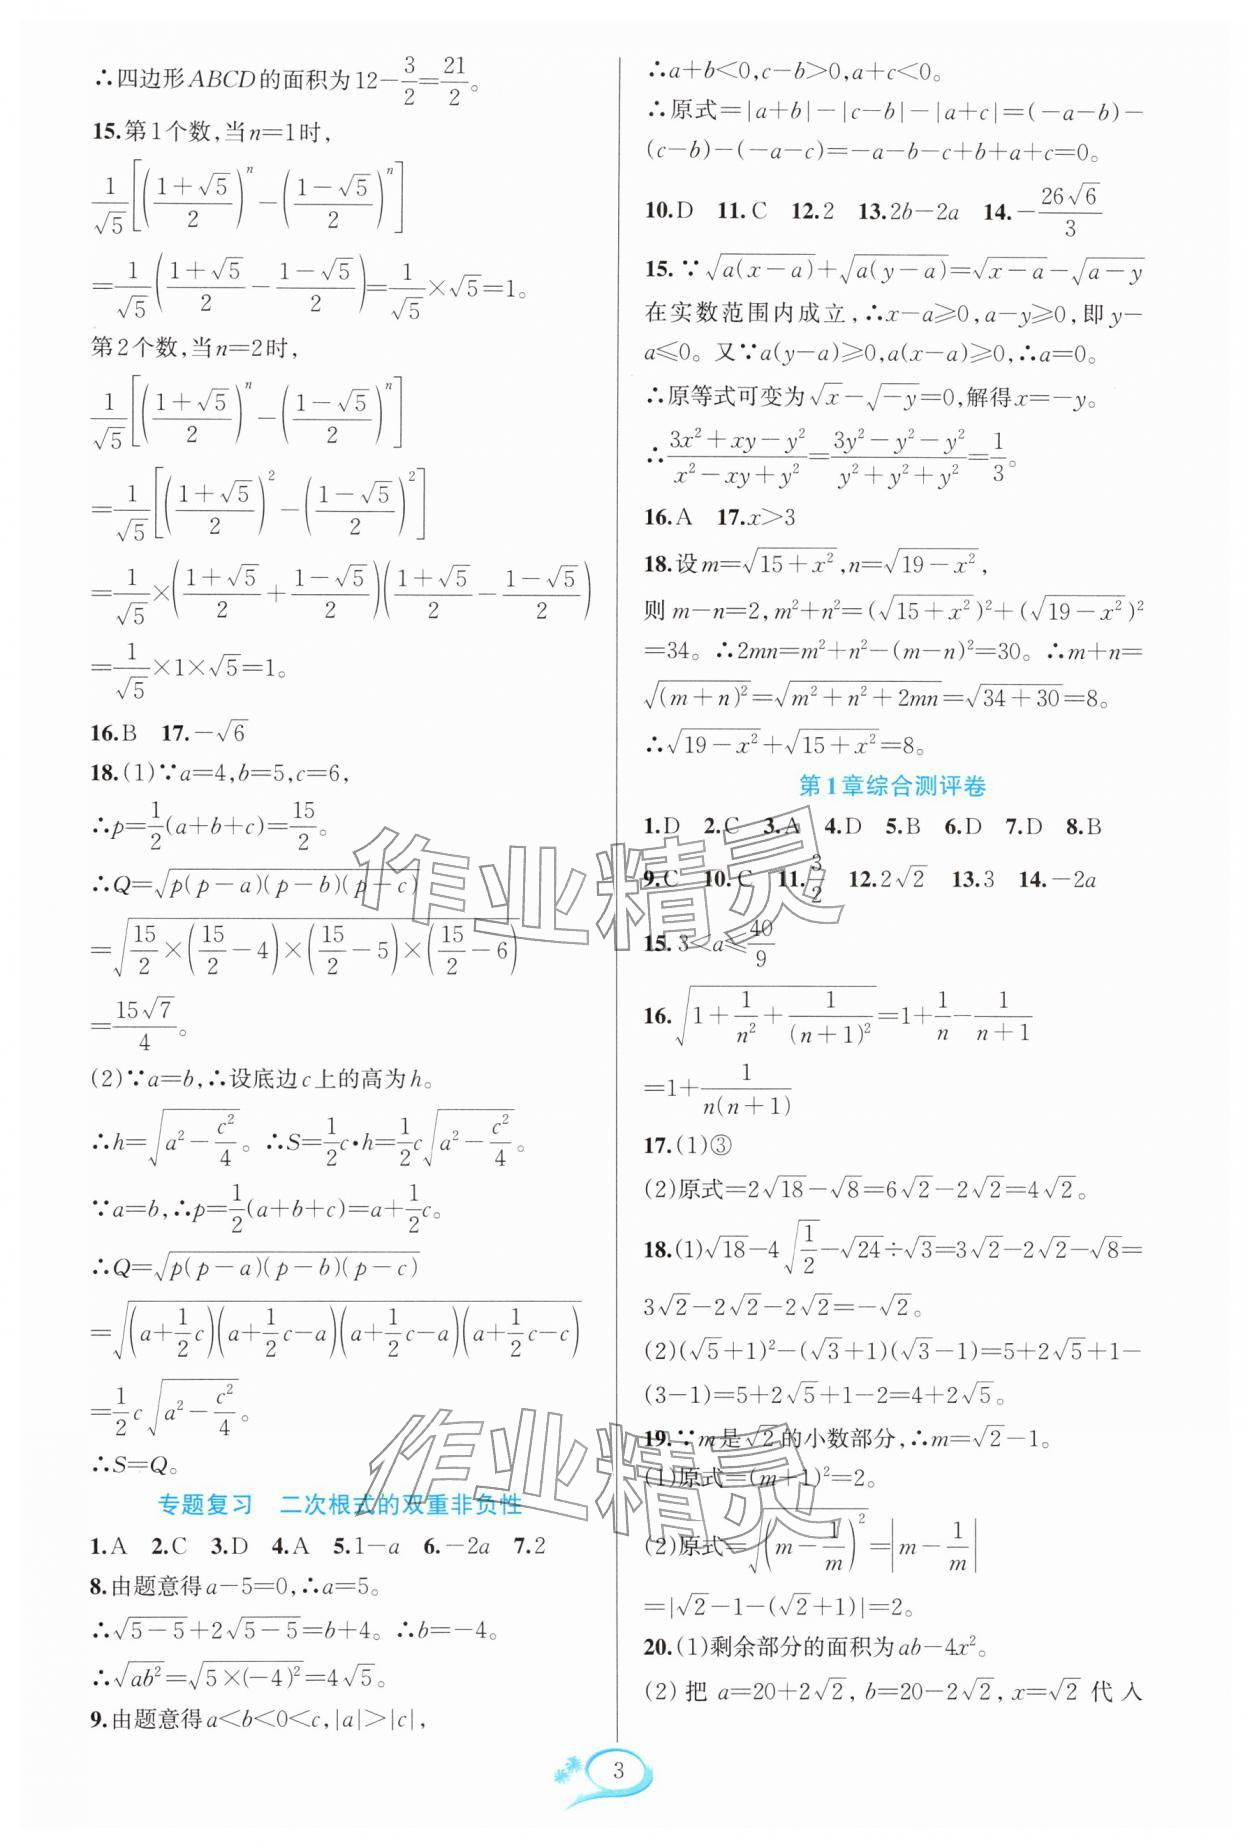 ∴四边形ABCD的面积为12−3/2=21/2。
15.第1个数,当n=1时,
1/√5[((1+√5)/2)^n−((1−√5)/2)^n]
=1/√5((1+√5)/2−(1−√5)/2)=1/√5×√5=1。
第2个数,当n=2时,
1/√5[((1+√5)/2)^n−((1−√5)/2)^n]
=1/√5[((1+√5)/2)^2−((1−√5)/2)^2]
=1/√5×((1+√5)/2+(1−√5)/2)((1+√5)/2−(1−√5)/2)
=1/√5×1×√5=1。
16.B 17.−√6
18.(1)∵a=4,b=5,c=6,
∴p=1/2(a+b+c)=15/2。
∴Q=√(p(p−a)(p−b)(p−c))
=√(15/2×(15/2−4)×(15/2−5)×(15/2−6))
=15√7/4。
(2)∵a=b,∴设底边c上的高为h。
∴h=√(a²−c²/4)。∴S=1/2c•h=1/2c√(a²−c²/4)。
∵a=b,∴p=1/2(a+b+c)=a+1/2c。
∴Q=√(p(p−a)(p−b)(p−c))
=√((a+1/2c)(a+1/2c−a)(a+1/2c−a)(a+1/2c−c))
=1/2c√(a²−c²/4)。
∴S=Q。
专题复习 二次根式的双重非负性
1.A 2.C 3.D 4.A 5.1−a 6.−2a 7.2
8.由题意得a−5=0,∴a=5。
∴√(5−5)+2√(5−5)=b+4。∴b=−4。
∴√(ab²)=√(5×(−4)²)=4√5。
9.由题意得a<b<0<c,|a|>|c|,
∴a+b<0,c−b>0,a+c<0。
∴原式=|a+b|−|c−b|−|a+c|=(−a−b)−
(c−b)−(−a−c)=−a−b−c+b+a+c=0。
10.D 11.C 12.2 13.2b−2a 14.−26√6/3
15.∵√(a(x−a))+√(a(y−a))=√(x−a)−√(a−y)
在实数范围内成立,∴x−a≥0,a−y≥0,即y−
a≤0。又∵a(y−a)≥0,a(x−a)≥0,∴a=0。
∴原等式可变为√x−√(−y)=0,解得x=−y。
∴(3x²+xy−y²)/(x²−xy+y²)=(3y²−y²−y²)/(y²+y²+y²)=1/3。
16.A 17.x>3
18.设m=√(15+x²),n=√(19−x²),
则m−n=2,m²+n²=(√(15+x²))²+(√(19−x²))²
=34。∴2mn=m²+n²−(m−n)²=30。∴m+n=
√((m+n)²)=√(m²+n²+2mn)=√(34+30)=8。
∴√(19−x²)+√(15+x²)=8。
第1章综合测评卷
1.D 2.C 3.A 4.D 5.B 6.D 7.D 8.B
9.C 10.C 11.3/2 12.2√2 13.3 14.−2a
15.3<a≤40/9
16.√(1+1/n²+1/(n+1)²)=1+1/n−1/(n+1)
=1+1/(n(n+1))
17.(1)③
(2)原式=2√18−√8=6√2−2√2=4√2。
18.(1)√18−4√(1/2)−√24÷√3=3√2−2√2−√8=
3√2−2√2−2√2=−√2。
(2)(√5+1)²−(√3+1)(√3−1)=5+2√5+1−
(3−1)=5+2√5+1−2=4+2√5。
19.∵m是√2的小数部分,∴m=√2−1。
(1)原式=(m+1)²=2。
(2)原式=√((m−1/m)²)=|m−1/m|
=|√2−1−(√2+1)|=2。
20.(1)剩余部分的面积为ab−4x²。
(2)把a=20+2√2,b=20−2√2,x=√2代入
3
作业精灵
作业精灵